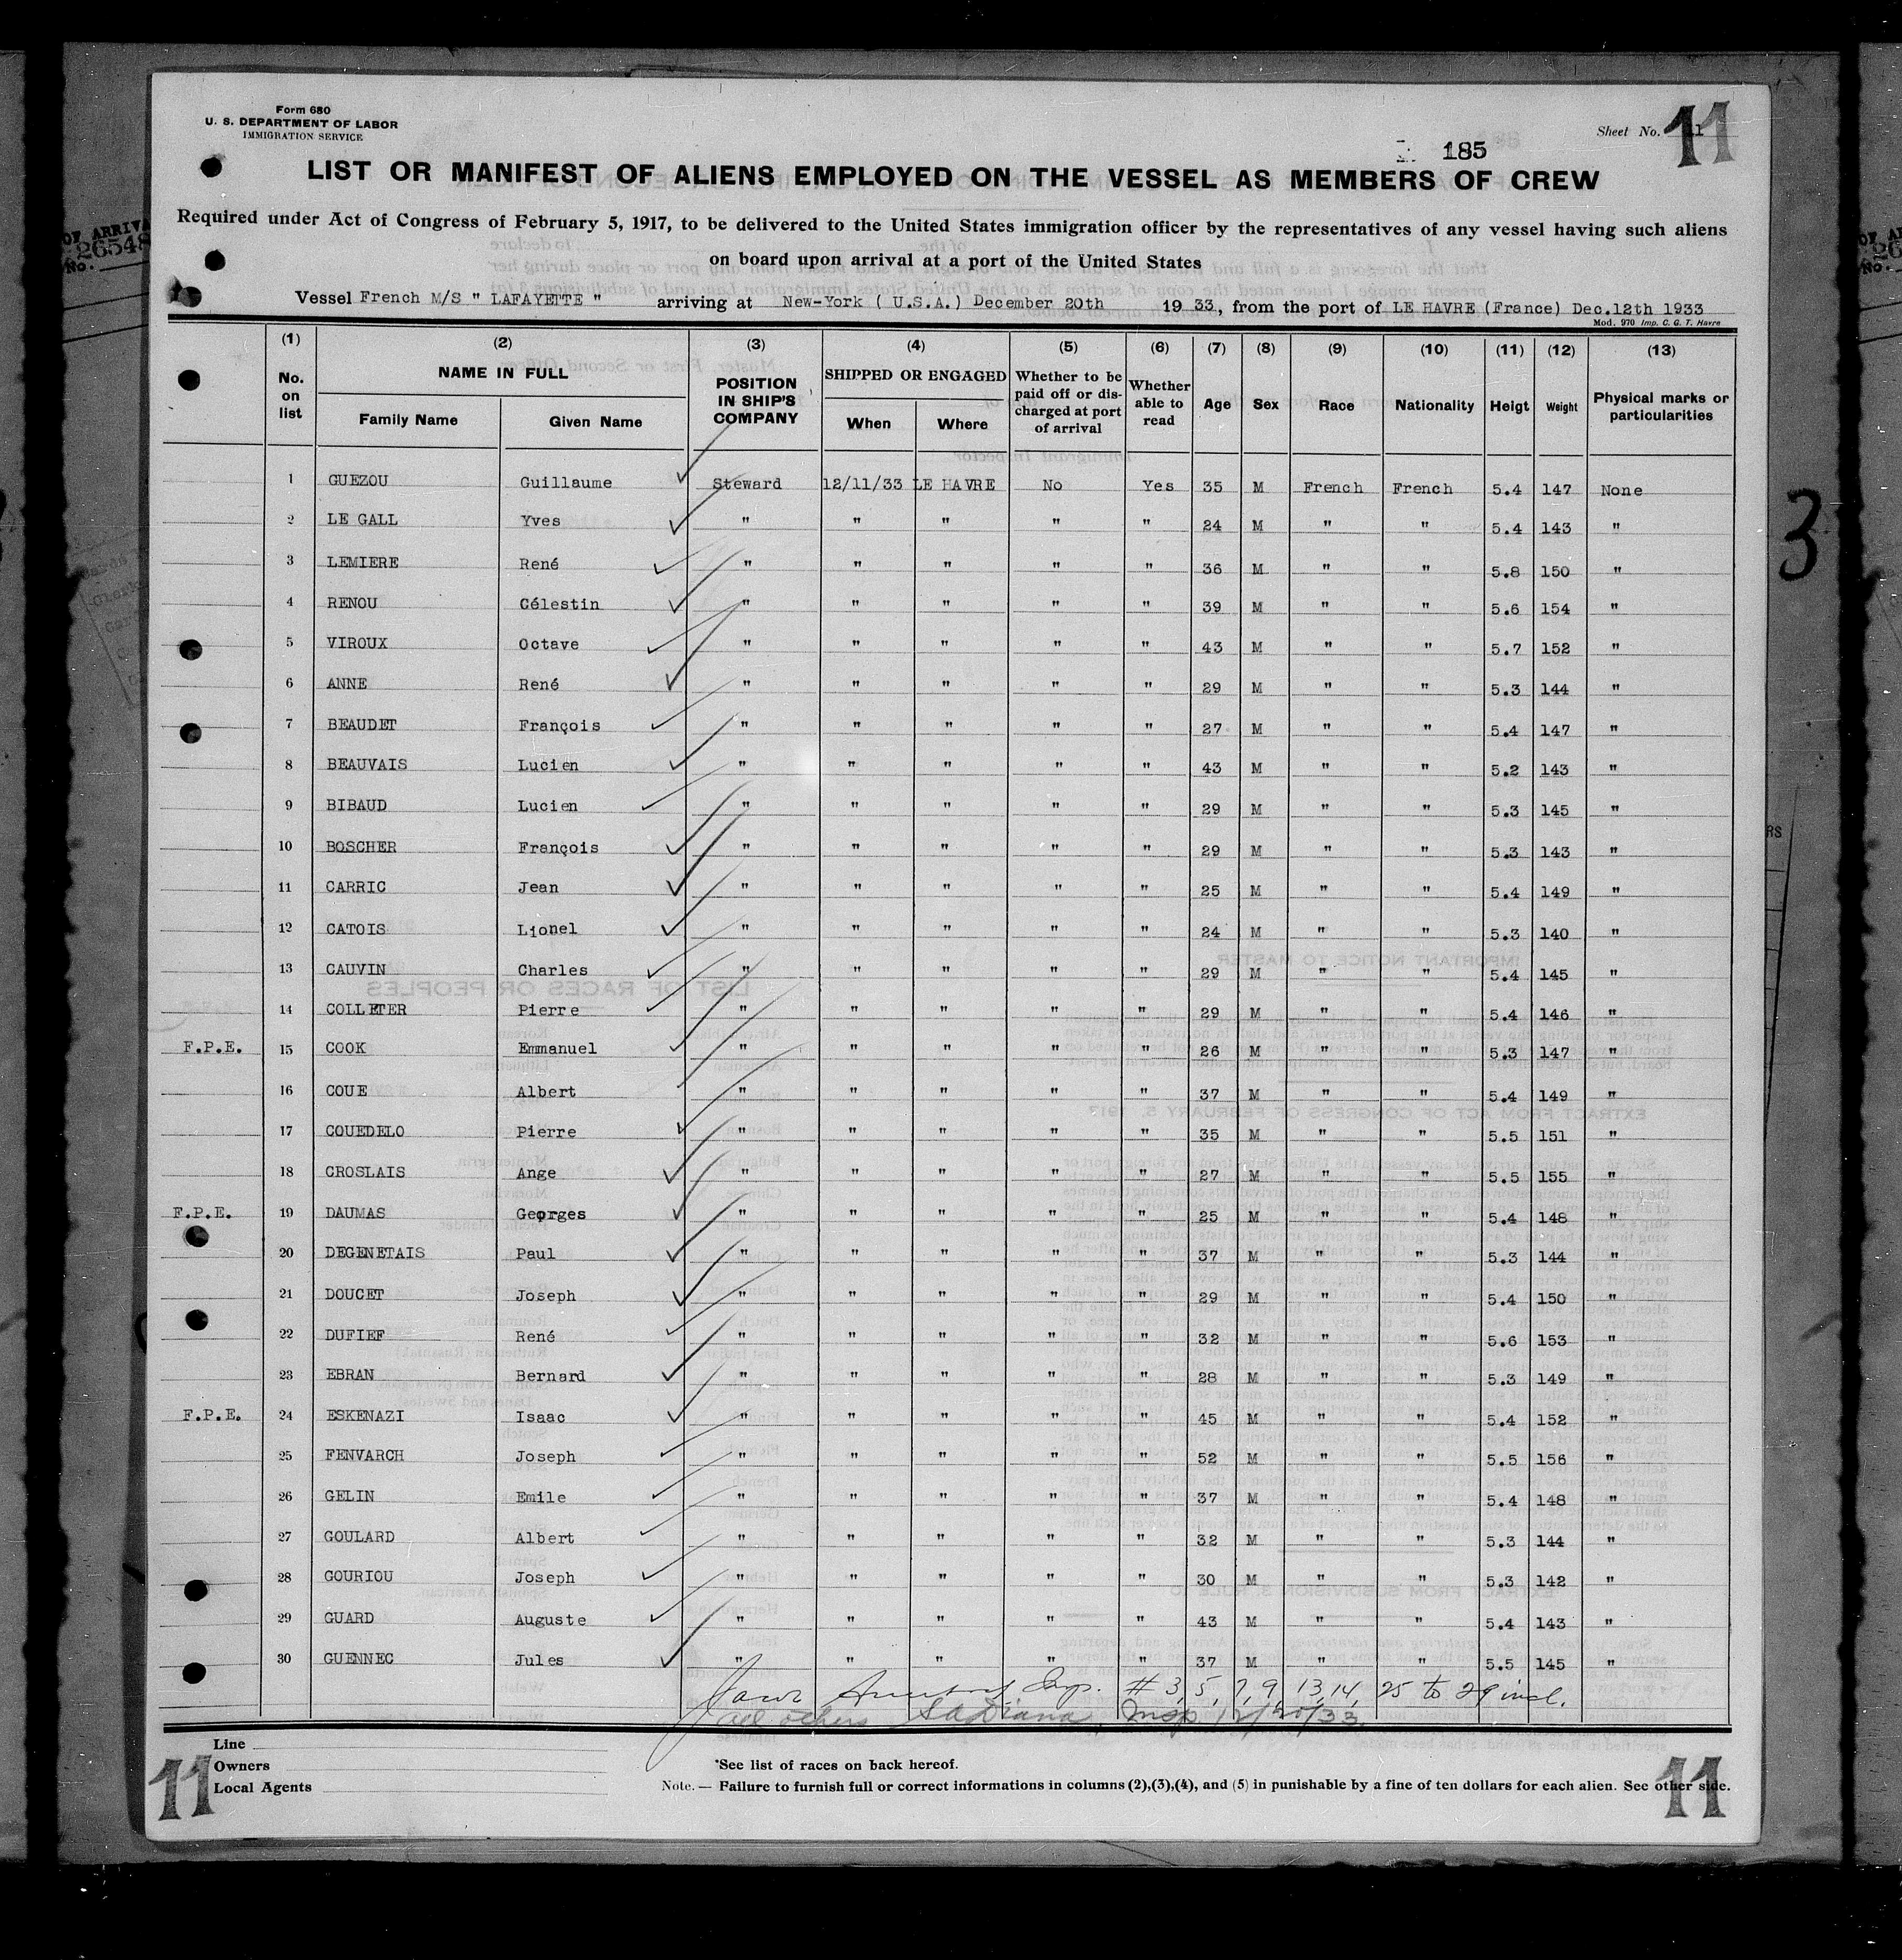 Form 680
U. S. DEPARTMENT OF LABOR
IMMIGRATION SERVICE
Sheet No. 11
11
185
LIST OR MANIFEST OF ALIENS EMPLOYED ON THE VESSEL AS MEMBERS OF CREW
Required under Act of Congress of February 5, 1917, to be delivered to the United States immigration officer by the representatives of any vessel having such aliens
on board upon arrival at a port of the United States
Vessel French M/S " LAFAYETTE " arriving at New-York ( U.S.A.) December 20th 19 33, from the port of LE HAVRE (France) Dec.12th 1933
Mod. 970 Imp. C. G. T. Havre
(1) (2) (3) (4) (5) (6) (7) (8) (9) (10) (11) (12) (13)
No. on list NAME IN FULL Family Name Given Name POSITION IN SHIP'S COMPANY SHIPPED OR ENGAGED When Where Whether to be paid off or discharged at port of arrival Whether able to read Age Sex Race Nationality Heigt Weight Physical marks or particularities
1 GUEZOU Guillaume Steward 12/11/33 LE HAVRE No Yes 35 M French French 5.4 147 None
2 LE GALL Yves " " " " " 24 M " " 5.4 143 "
3 LEMIERE René " " " " " 36 M " " 5.8 150 "
4 RENOU Célestin " " " " " 39 M " " 5.6 154 "
5 VIROUX Octave " " " " " 43 M " " 5.7 152 "
6 ANNE René " " " " " 29 M " " 5.3 144 "
7 BEAUDET François " " " " " 27 M " " 5.4 147 "
8 BEAUVAIS Lucien " " " " " 43 M " " 5.2 143 "
9 BIBAUD Lucien " " " " " 29 M " " 5.3 145 "
10 BOSCHER François " " " " " 29 M " " 5.3 143 "
11 CARRIC Jean " " " " " 25 M " " 5.4 149 "
12 CATOIS Lionel " " " " " 24 M " " 5.3 140 "
13 CAUVIN Charles " " " " " 29 M " " 5.4 145 "
14 COLLETER Pierre " " " " " 29 M " " 5.4 146 "
F.P.E. 15 COOK Emmanuel " " " " " 26 M " " 5.3 147 "
16 COUE Albert " " " " " 37 M " " 5.4 149 "
17 COUEDELO Pierre " " " " " 35 M " " 5.5 151 "
18 CROSLAIS Ange " " " " " 27 M " " 5.5 155 "
F.P.E. 19 DAUMAS Georges " " " " " 25 M " " 5.4 148 "
20 DEGENETAIS Paul " " " " " 37 M " " 5.3 144 "
21 DOUCET Joseph " " " " " 29 M " " 5.4 150 "
22 DUFIEF René " " " " " 32 M " " 5.6 153 "
23 EBRAN Bernard " " " " " 28 M " " 5.3 149 "
F.P.E. 24 ESKENAZI Isaac " " " " " 45 M " " 5.4 152 "
25 FENVARCH Joseph " " " " " 52 M " " 5.5 156 "
26 GELIN Emile " " " " " 37 M " " 5.4 148 "
27 GOULARD Albert " " " " " 32 M " " 5.3 144 "
28 GOURIOU Joseph " " " " " 30 M " " 5.3 142 "
29 GUARD Auguste " " " " " 43 M " " 5.4 143 "
30 GUENNEC Jules " " " " " 37 M " " 5.5 145 "
Insp. # 3, 5, 7, 9, 13, 14, 25 to 29 incl.
all others Insp 12/20/33.
Line
Owners
Local Agents
*See list of races on back hereof.
Note. — Failure to furnish full or correct informations in columns (2),(3),(4), and (5) in punishable by a fine of ten dollars for each alien. See other side.
11
11
3